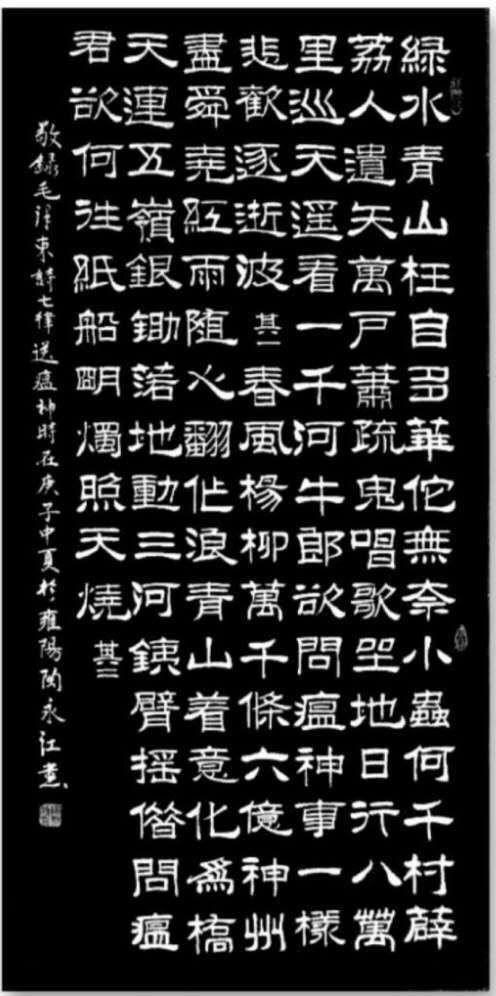 緑水青山枉自多華佗無奈小蟲何千村薜
荔人遺矢萬戶蕭疏鬼唱歌坐地日行八萬
里巡天遥看一千河牛郎欲問瘟神事一樣
悲歡逐逝波其一春風楊柳萬千條六億神州
盡舜堯紅雨随心翻作浪青山着意化爲橋
天連五嶺銀鋤落地動三河鐵臂摇借問瘟
君欲何往紙船明燭照天燒其二
敬錄毛澤東詩七律送瘟神時在庚子中夏於雍陽陶永江書